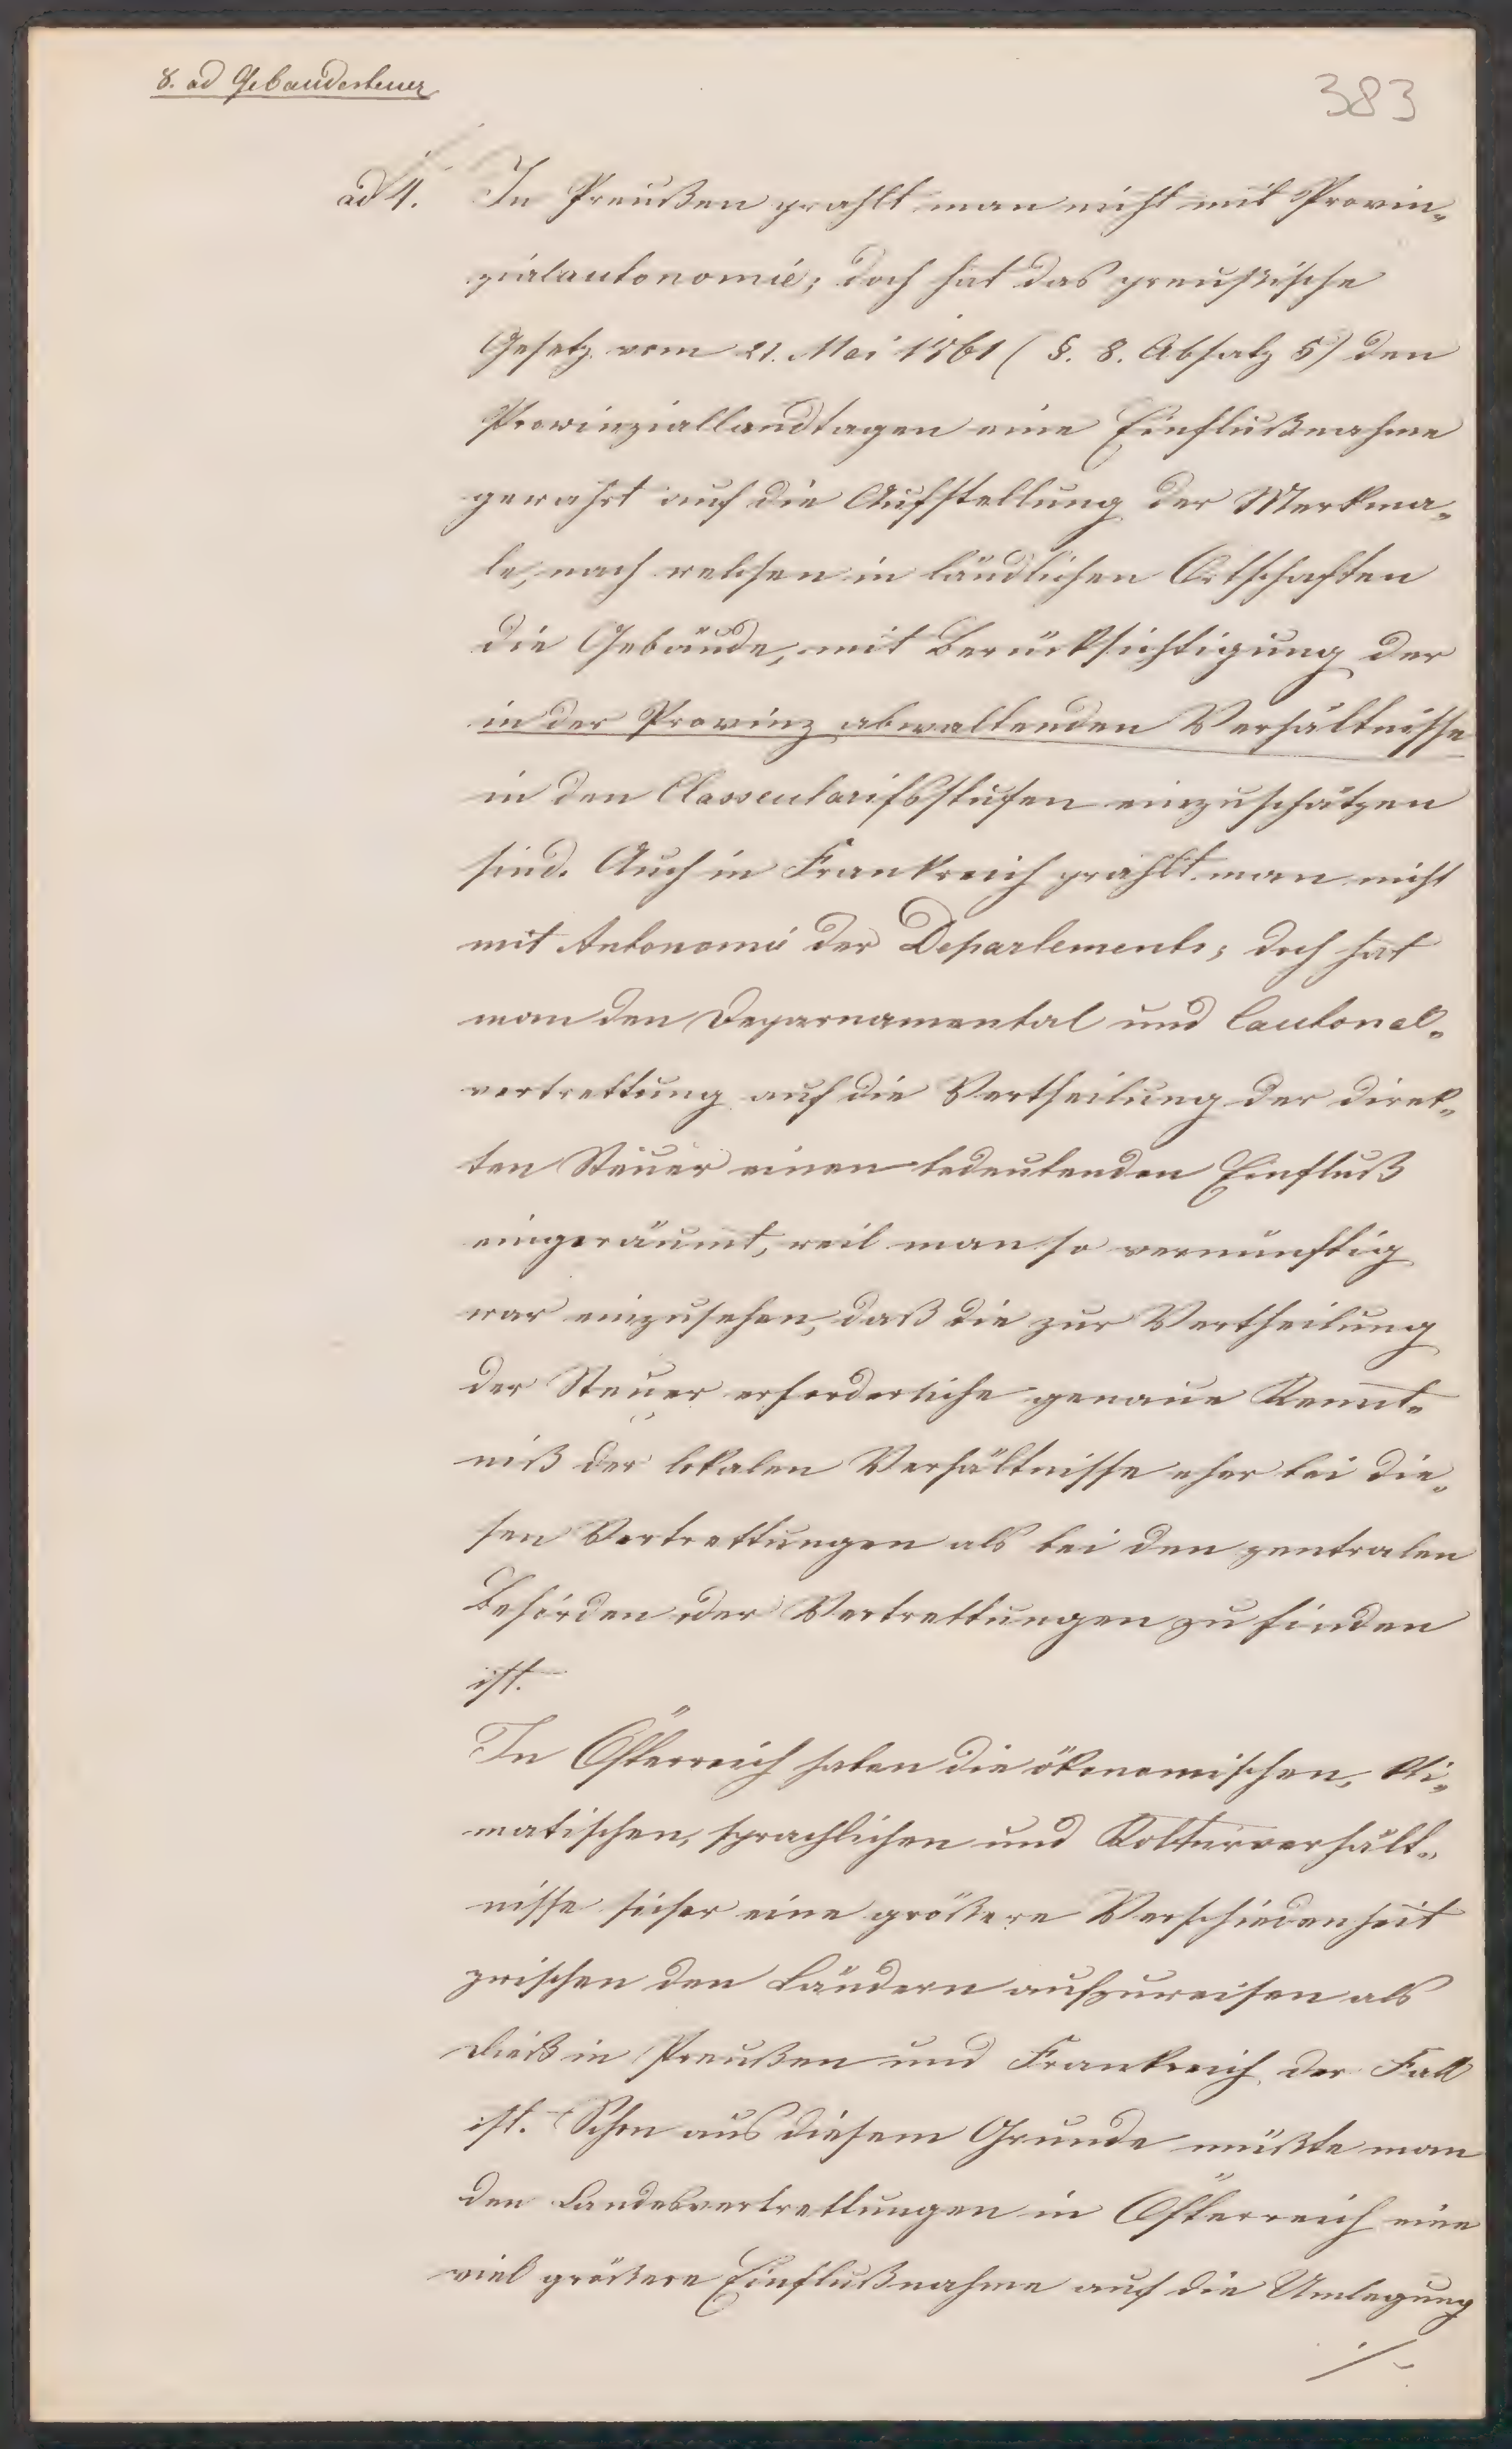 8. ad Gebaudesteuer
383
ad 4. In Preußen prahlt man nicht mit Provin„
zialautonomie; doch hat das preußische
Gesetz vom 21. Mai 1861 (§. 8. Absatz 5) den
Provinziallandtagen eine Einflußnahme
gewahrt auf die Aufstellung der Merkma„
le, nach welchen in ländlichen Ortschaften
die Gebäude, mit Berücksichtigung der
in der Provinz obwaltenden Verhältnisse
in den Classentarifsstufen einzuschätzen
sind. Auch in Frankreich prahlt man nicht
mit Autonomie der Departements; doch hat
man den Departamental und Cantonal„
vertrettung auf die Vertheilung der direk„
ten Steuer einen bedeutenden Einfluß
eingeräumt, weil man so vernünftig
war einzusehen, daß die zur Vertheilung
der Steuer erforderliche genaue Kennt„
niß der lokalen Verhältnisse eher bei die„
sen Vertrettungen als bei den zentralen
Behörden oder Vertrettungen zu finden
ist.
In Österreich haben die ökonomischen, kli„
matischen, sprachlichen und Kolturverhält„
nisse sicher eine größere Verschiedenheit
zwischen den Ländern aufzuweisen als
dieß in Preußen und Frankreich der Fall
ist. Schon aus diesem Grunde müßte man
den Landesvertrettungen in Österreich eine
viel größere Einflußnahme auf die Umlegung
./.